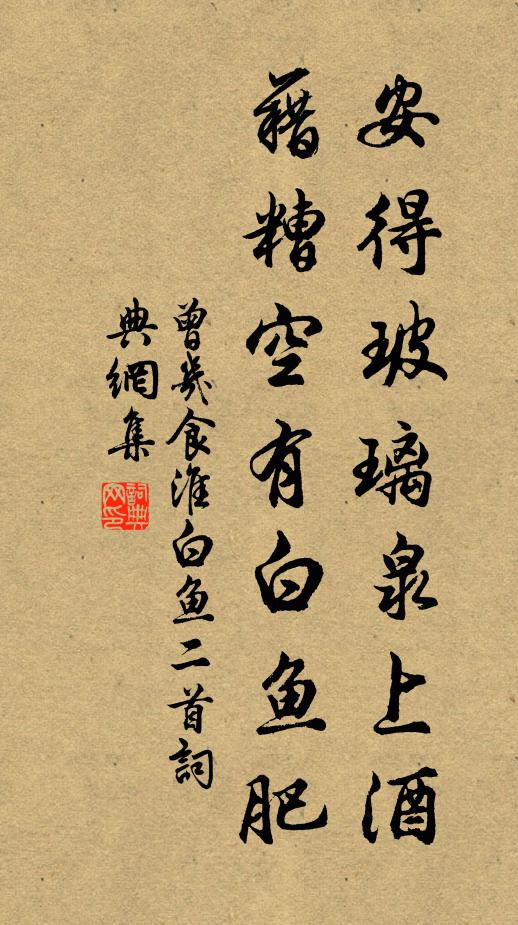 安得玻璃泉上酒
藉糟空有白鱼肥
曾幾食淮白鱼二首詞
典網集
詞典
网印